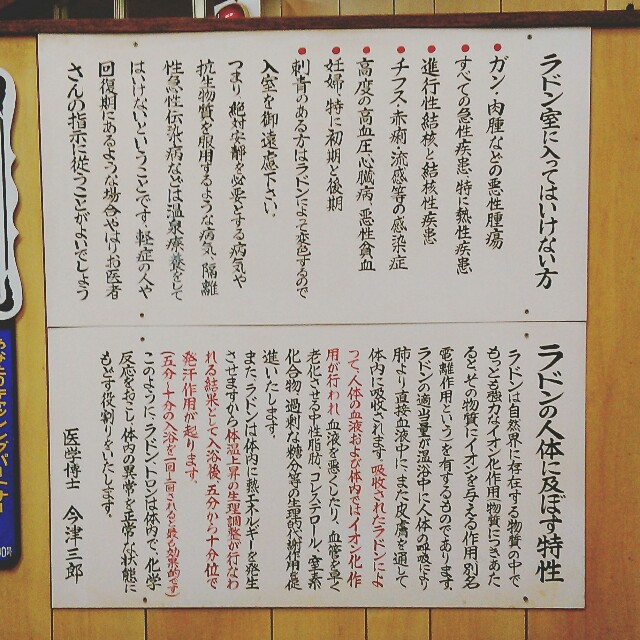 ラドン室に入ってはいけない方
ガン・肉腫などの悪性腫瘍
すべての急性疾患 特に熱性疾患
進行性結核と結核性疾患
チフス・赤痢・流感等の感染症
高度の高血圧 心臓病 悪性貧血
妊婦・特に初期と後期
刺青のある方はラドンによって変色するので
入室を御遠慮下さい
つまり絶対安静を必要とする病気や
抗生物質を取用するような病気 隔離
性急性伝染病などは温泉療養をして
はいけないということです。軽症の人や
回復期にあるような場合やはりお医者
さんの指示に従うことがよいでしょう
ラドンの人体に及ぼす特性
ラドンは自然界に存在する物質の中で
もっとも強力なイオン化作用物質につきあた
るとその物質にイオンを与える作用 別名
電離作用という)を有するものであります。
ラドンの適当量が温浴中に人体の呼吸により
肺より直接血液中に、また皮膚を通して
体内に吸収されます。吸収されたラドンによ
って、人体の血液および体内ではイオン化作
用が行われ、血液を悪くしたり、血管を早く
老化させる中性脂肪、コレステロール、窒素
化合物、過剰な糖分等の生理的代謝作用を促
進いたします。
また、ラドンは体内に熱エネルギーを発生
させますから体温上昇の生理調整が行なわ
れる結果として入浴後、五分から十分位で
発汗作用が起ります。
(五分〜十分の入浴を一回〜二回されると最も効果的です)
このように、ラドン、トロンは体内で、化学
反応をおこし、体内の異常を正常な状態に
もどす役割りをいたします。
医学博士 今津三郎